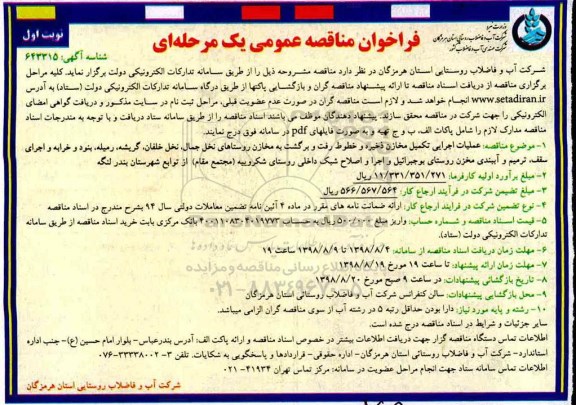 وزارت نیرو
شرکت آب و فاضلاب روستایی استان هرمزگان
شرکت مهندسی آب و فاضلاب کشور
نوبت اول
فراخوان مناقصه عمومی یک مرحله‌ای
شناسه آگهی: ۶۴۳۳۱۵
شرکت آب و فاضلاب روستایی استان هرمزگان در نظر دارد مناقصه مشروحه ذیل را از طریق سامانه تدارکات الکترونیکی دولت برگزار نماید. کلیه مراحل
برگزاری مناقصه از دریافت اسناد مناقصه تا ارائه پیشنهاد مناقصه گران و بازگشایی پاکتها از طریق درگاه سامانه تدارکات الکترونیکی دولت (ستاد) به آدرس
www.setadiran.ir انجام خواهد شد و لازم است مناقصه گران در صورت عدم عضویت قبلی، مراحل ثبت نام در سایت مذکور و دریافت گواهی امضای
الکترونیکی را جهت شرکت در مناقصه محقق سازند. پیشنهاد دهندگان موظف می باشند اسناد مناقصه را از طریق سامانه ستاد دریافت و با توجه به مندرجات اسناد
مناقصه مدارک لازم را شامل پاکات الف، ب و ج تهیه و بصورت فایلهای pdf در سامانه فوق درج نمایند.
۱- موضوع مناقصه: عملیات اجرایی تکمیل مخازن ذخیره و خطوط رفت و برگشت به مخازن روستاهای نخل جمال، نخل خلفان، گریشه، رمیله، بنود و خرابه و اجرای
سقف، ترمیم و آببندی مخزن روستای بوجبرائیل و اجرا و اصلاح شبک داخلی روستای شکروییه (مجتمع مقام) از توابع شهرستان بندر لنگه
۲- مبلغ برآورد اولیه کارفرما: ۱۱/۳۳۱/۳۵۱/۲۷۱ ریال
۳- مبلغ تضمین شرکت در فرآیند ارجاع کار: ۵۶۶/۵۶۷/۵۶۴ ریال
۴- نوع تضمین شرکت در فرایند ارجاع کار: ارائه ضمانت نامه های مقرر در ماده ۴ آئین نامه تضمین معاملات دولتی سال ۹۴ بشرح مندرج در اسناد مناقصه
۵- قیمت اسناد مناقصه و شماره حساب: واریز مبلغ ۵۰۰/۰۰۰ ریال به حساب بانک مرکزی بابت خرید اسناد مناقصه از طریق سامانه
تدارکات الکترونیکی دولت (ستاد).
۶- مهلت زمان دریافت اسناد مناقصه از سامانه: ۱۳۹۸/۸/۴ تا ۱۳۹۸/۸/۹ ساعت ۱۹
۷- مهلت زمان ارائه پیشنهاد: تا ساعت ۱۹ مورخ ۱۳۹۸/۸/۱۹
۸- تاریخ بازگشائی پیشنهادات: در ساعت ۹ صبح مورخ ۱۳۹۸/۸/۲۰
۹- محل بازگشایی پیشنهادات: سالن کنفرانس شرکت آب و فاضلاب روستائی استان هرمزگان
۱۰- رشته و پایه مورد نیاز: دارا بودن حداقل رتبه ۵ در رشته آب از سوی مناقصه گران الزامی میباشد.
سایر جزئیات و شرایط در اسناد مناقصه درج شده است.
اطلاعات تماس دستگاه مناقصه گزار جهت دریافت اطلاعات بیشتر در خصوص اسناد مناقصه و ارائه پاکت الف: آدرس بندرعباس- بلوار امام حسین (ع)- جنب اداره
استاندارد- شرکت آب و فاضلاب روستائی استان هرمزگان- اداره حقوقی - قراردادها و پاسخگویی به شکایات. تلفن ۳- ۳۳۳۳۸۰۰۲-۰۷۶
اطلاعات تماس سامانه ستاد جهت انجام مراحل عضویت در سامانه: مرکز تماس تهران ۴۱۹۳۴-۰۲۱
شرکت آب و فاضلاب روستایی استان هرمزگان